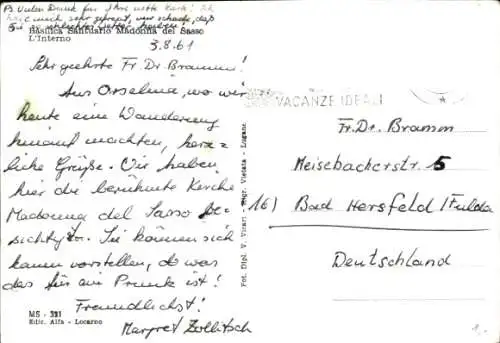 Ps Vielen Dank für Ihre nette Karte! Ich
habe mich sehr gefreut, nur schade, daß
Sie so schlechtes Wetter haben!
Basilica Santuario Madonna del Sasso
L'Interno
3.8.61
Sehr geehrte Fr Dr. Bramm!
Aus Orselina, wo wir
heute eine Wanderung
hinauf machten, herz-
liche Grüße. Wir haben
hier die berühmte Kirche
Madonna del Sasso be-
sichtigt. Sie können sich
kaum vorstellen, was
das für ein Prunk ist!
Freundlichst!
Margret Zollitsch
MS - 321
Edit. Alfa - Locarno
Fot. Dipl. V. Vicari - Lugano
VACANZE IDEALI
Fr. Dr. Bramm
Meisebacherstr. 5
16) Bad Hersfeld/Fulda
Deutschland
1.-